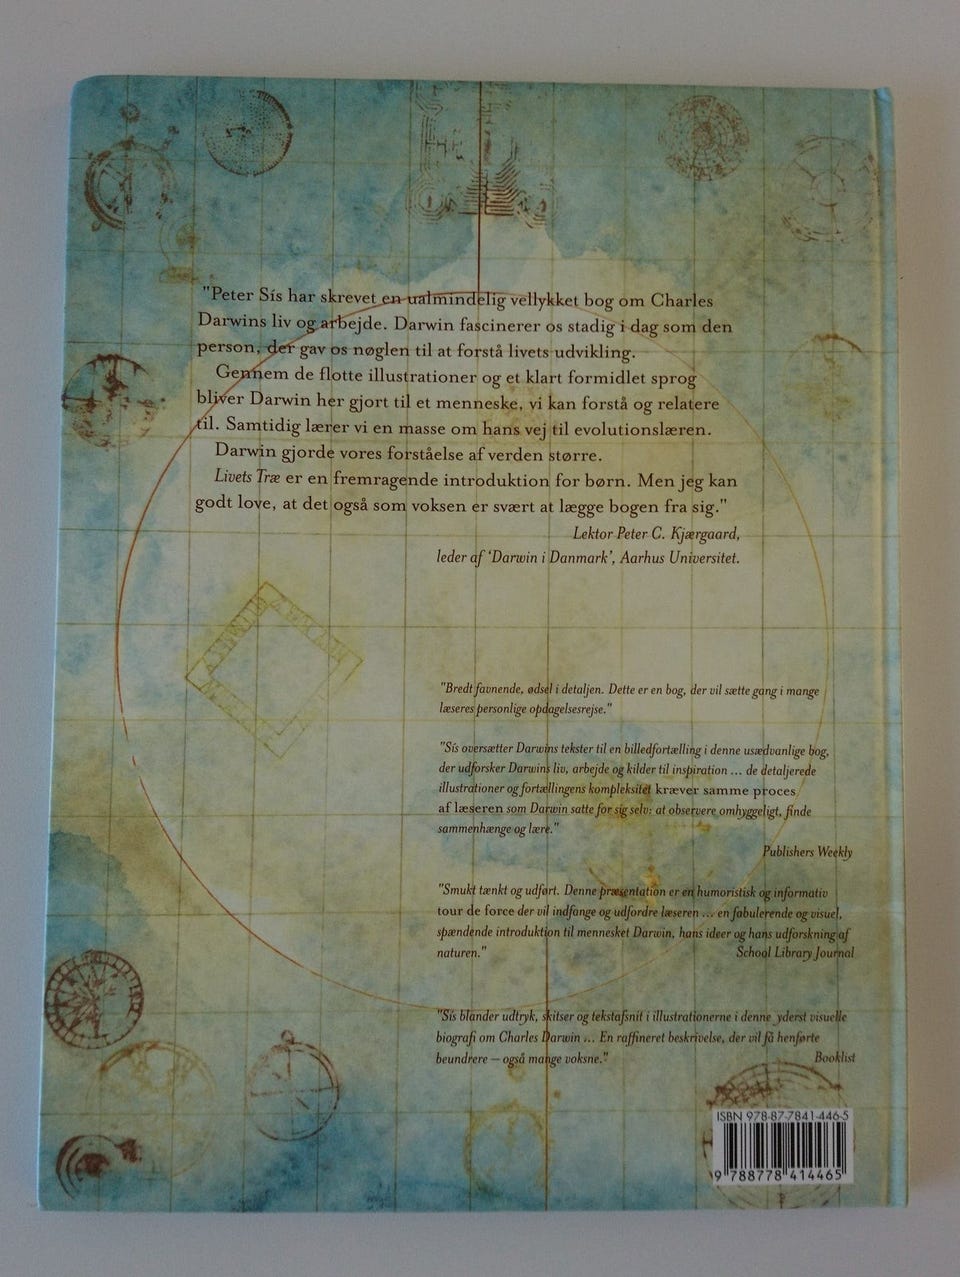 "Peter Sís har skrevet en ualmindelig vellykket bog om Charles
Darwins liv og arbejde. Darwin fascinerer os stadig i dag som den
person, der gav os nøglen til at forstå livets udvikling.
Gennem de flotte illustrationer og et klart formidlet sprog
bliver Darwin her gjort til et menneske, vi kan forstå og relatere
til. Samtidig lærer vi en masse om hans vej til evolutionslæren.
Darwin gjorde vores forståelse af verden større.
Livets Træ er en fremragende introduktion for børn. Men jeg kan
godt love, at det også som voksen er svært at lægge bogen fra sig."
Lektor Peter C. Kjærgaard,
leder af 'Darwin i Danmark', Aarhus Universitet.
"Bredt favnende, ødsel i detaljen. Dette er en bog, der vil sætte gang i mange
læseres personlige opdagelsesrejse."
"Sís oversætter Darwins tekster til en billedfortælling i denne usædvanlige bog,
der udforsker Darwins liv, arbejde og kilder til inspiration ... de detaljerede
illustrationer og fortællingens kompleksitet kræver samme proces
af læseren som Darwin satte for sig selv: at observere omhyggeligt, finde
sammenhænge og lære."
Publishers Weekly
"Smukt tænkt og udført. Denne præsentation er en humoristisk og informativ
tour de force der vil indfange og udfordre læseren ... en fabulerende og visuel,
spændende introduktion til mennesket Darwin, hans ideer og hans udforskning af
naturen." School Library Journal
"Sís blander udtryk, skitser og tekstafsnit i illustrationerne i denne yderst visuelle
biografi om Charles Darwin ... En raffineret beskrivelse, der vil få henførte
beundrere – også mange voksne." Booklist
ISBN 978-87-7841-446-5
9 788778 414465